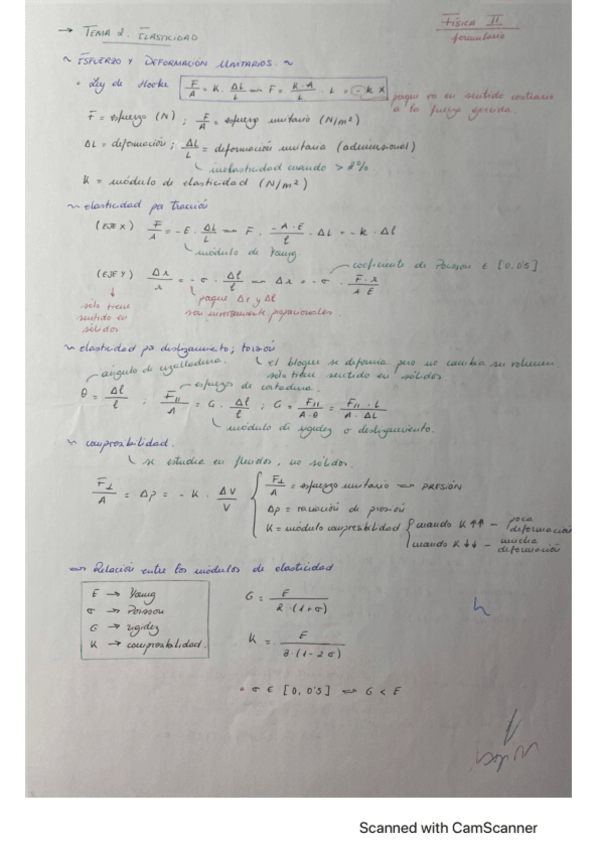 → TEMA 2. ELASTICIDAD
FÍSICA II
formulario
~ ESFUERZO Y DEFORMACIÓN UNITARIOS. ~
• Ley de Hooke F/A = K · ΔL/L ⇒ F = K·A/L · L = -K x
porque va en sentido contrario
a la fuerza ejercida.
F = esfuerzo (N) ; F/A = esfuerzo unitario (N/m²)
ΔL = deformación ; ΔL/L = deformación unitaria (adimensional)
inelasticidad cuando > 2%
K = módulo de elasticidad (N/m²)
~ elasticidad por tracción
(EJE X) F/A = -E · ΔL/L ⇒ F · -A·E/l · ΔL = -K · Δl
módulo de Young
coeficiente de Poisson ∈ [0, 0'5]
(EJE Y) Δr/r = -σ · Δl/l ⇒ Δr = -σ · F·r/A·E
solo tiene
sentido en
sólidos
porque Δr y Δl
son inversamente proporcionales
~ elasticidad por deslizamiento; torsión
ángulo de cizalladura.
el bloque se deforma pero no cambia su volumen
solo tiene sentido en sólidos
esfuerzo de cortadura.
θ = Δl/l ; F∥/A = G · Δl/l ; G = F∥/A·θ = F∥·L/A·ΔL
módulo de rigidez o deslizamiento.
~ compresibilidad.
se estudia en fluidos, no sólidos.
F⊥/A = Δp = -K · ΔV/V
F⊥/A = esfuerzo unitario ⇒ PRESIÓN
Δp = variación de presión
K = módulo compresibilidad
cuando K ↑↑ – poca
deformación
cuando K ↓↓ – mucha
deformación
⇒ Relación entre los módulos de elasticidad
E → Young
σ → Poisson
G → rigidez
K → compresibilidad.
G = E/2·(1+σ)
K = E/3·(1-2σ)
• σ ∈ [0, 0'5] ⇒ G < E
Scanned with CamScanner